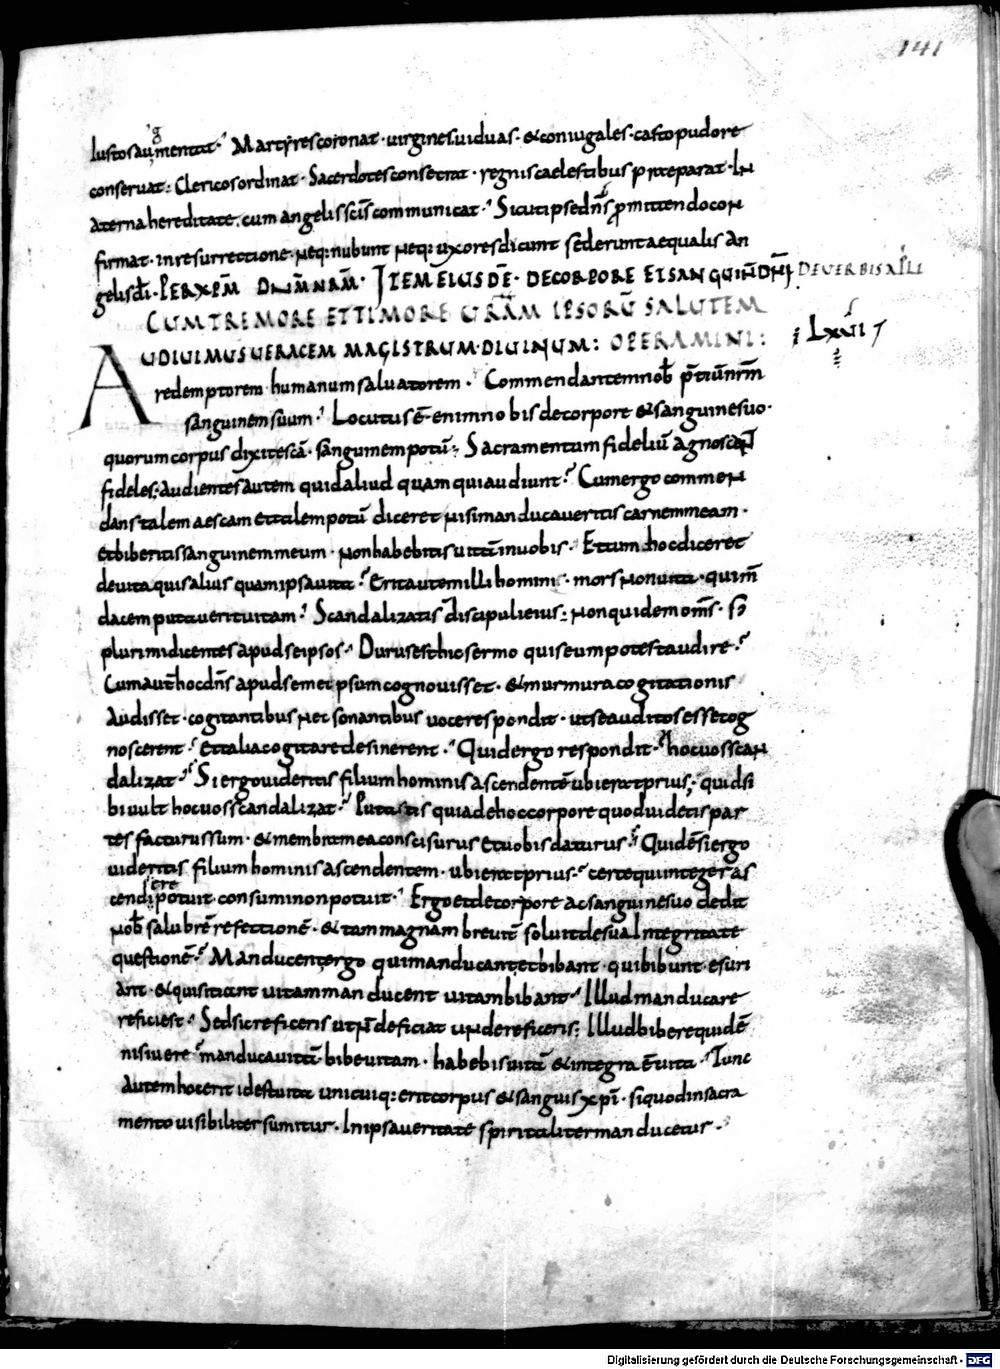 141
Iustos augmentat· Martyres coronat· virgines viduas· & coniugales· casto pudore
conservat: Clericos ordinat· Sacerdotes consecrat· regnis caelestibus pręparat· In
aeterna hereditate. cum angelis scīs communicat· Sicut ipse dn̄s promittendo con
firmat· in resurrectione· neq: nubunt neq: uxores dicunt sed erunt aequalis an
gelis dī· PER XPM DNM NRM· ITEM EIUSDĒ· DE CORPORE ET SANGUINE DNI DE VERBIS APLI
CUM TREMORE ET TIMORE URAM IPSORŪ SALUTEM
AUDIVIMUS VERACEM MAGISTRUM· DIVINUM: OPERAMINI: LXVII
redemptorem humanum salvatorem· Commendantem nob p̄tiū nr̄m
sanguinem suum· Locutus ē enim nobis de corpore & sanguine suo·
quorum corpus dixit escā· sanguinem potū· Sacramentum fideliū agnoscant
fideles; Audientes autem quid aliud quam qui audiunt· Cum ergo commen
dans talem aescam et talem potū diceret nisi manducaveritis carnem meam·
et biberitis sanguinem meum· non habebitis vitā in vobis· Et tum hoc diceret
de vita quis alius quam ipsa vita· Erit autem illi homini· mors non vita· qui m̄
dacem putaverit vitam· Scandalizati s̄ discipuli eius: non quidem om̄s· s̄
plurimi dicentes apud se ipsos· Durus est hic sermo quis eum potest audire·
Cum aut̄ hoc dn̄s apud semet ipsum cognovisset· & murmura cogitationis
audisset· cogitantibus nec sonantibus voce respondit· ut se auditos esse cog
noscerent· et talia cogitare desinerent· Quid ergo respondit· hoc vos scan
dalizat· Si ergo videritis filium hominis ascendentē ubi erat prius; quid si
bi vult hoc vos scandalizat· Putastis quia de hoc corpore quod videtis par
tes facturus sum· & membra mea conscisurus et vobis daturus· Quid ē si ergo
videritis filium hominis ascendentem· ubi erat prius· certe qui integer as
cendere potuit· consumi non potuit· Ergo et de corpore ac sanguine suo dedit
nob salubrē refectionē· & tam magnam breviī solvit de sua integritate
questionē· Manducent ergo qui manducant et bibant· qui bibunt· esuri
ant· & quisitiant vitam manducent vitam bibant· Illud manducare
refici est· Sed sic reficeris ut n̄ deficiat unde reficeris; Illud bibere quid ē
nisi vere· manduca vitā· bibe vitam· habebis vitā & integra ē vita· Tunc
autem hoc erit id est vita unicuiq: erit corpus & sanguis xpī· si quod in sacra
mento visibiliter sumitur· In ipsa veritate spiritaliter manducetur·
Digitalisierung gefördert durch die Deutsche Forschungsgemeinschaft - DFG